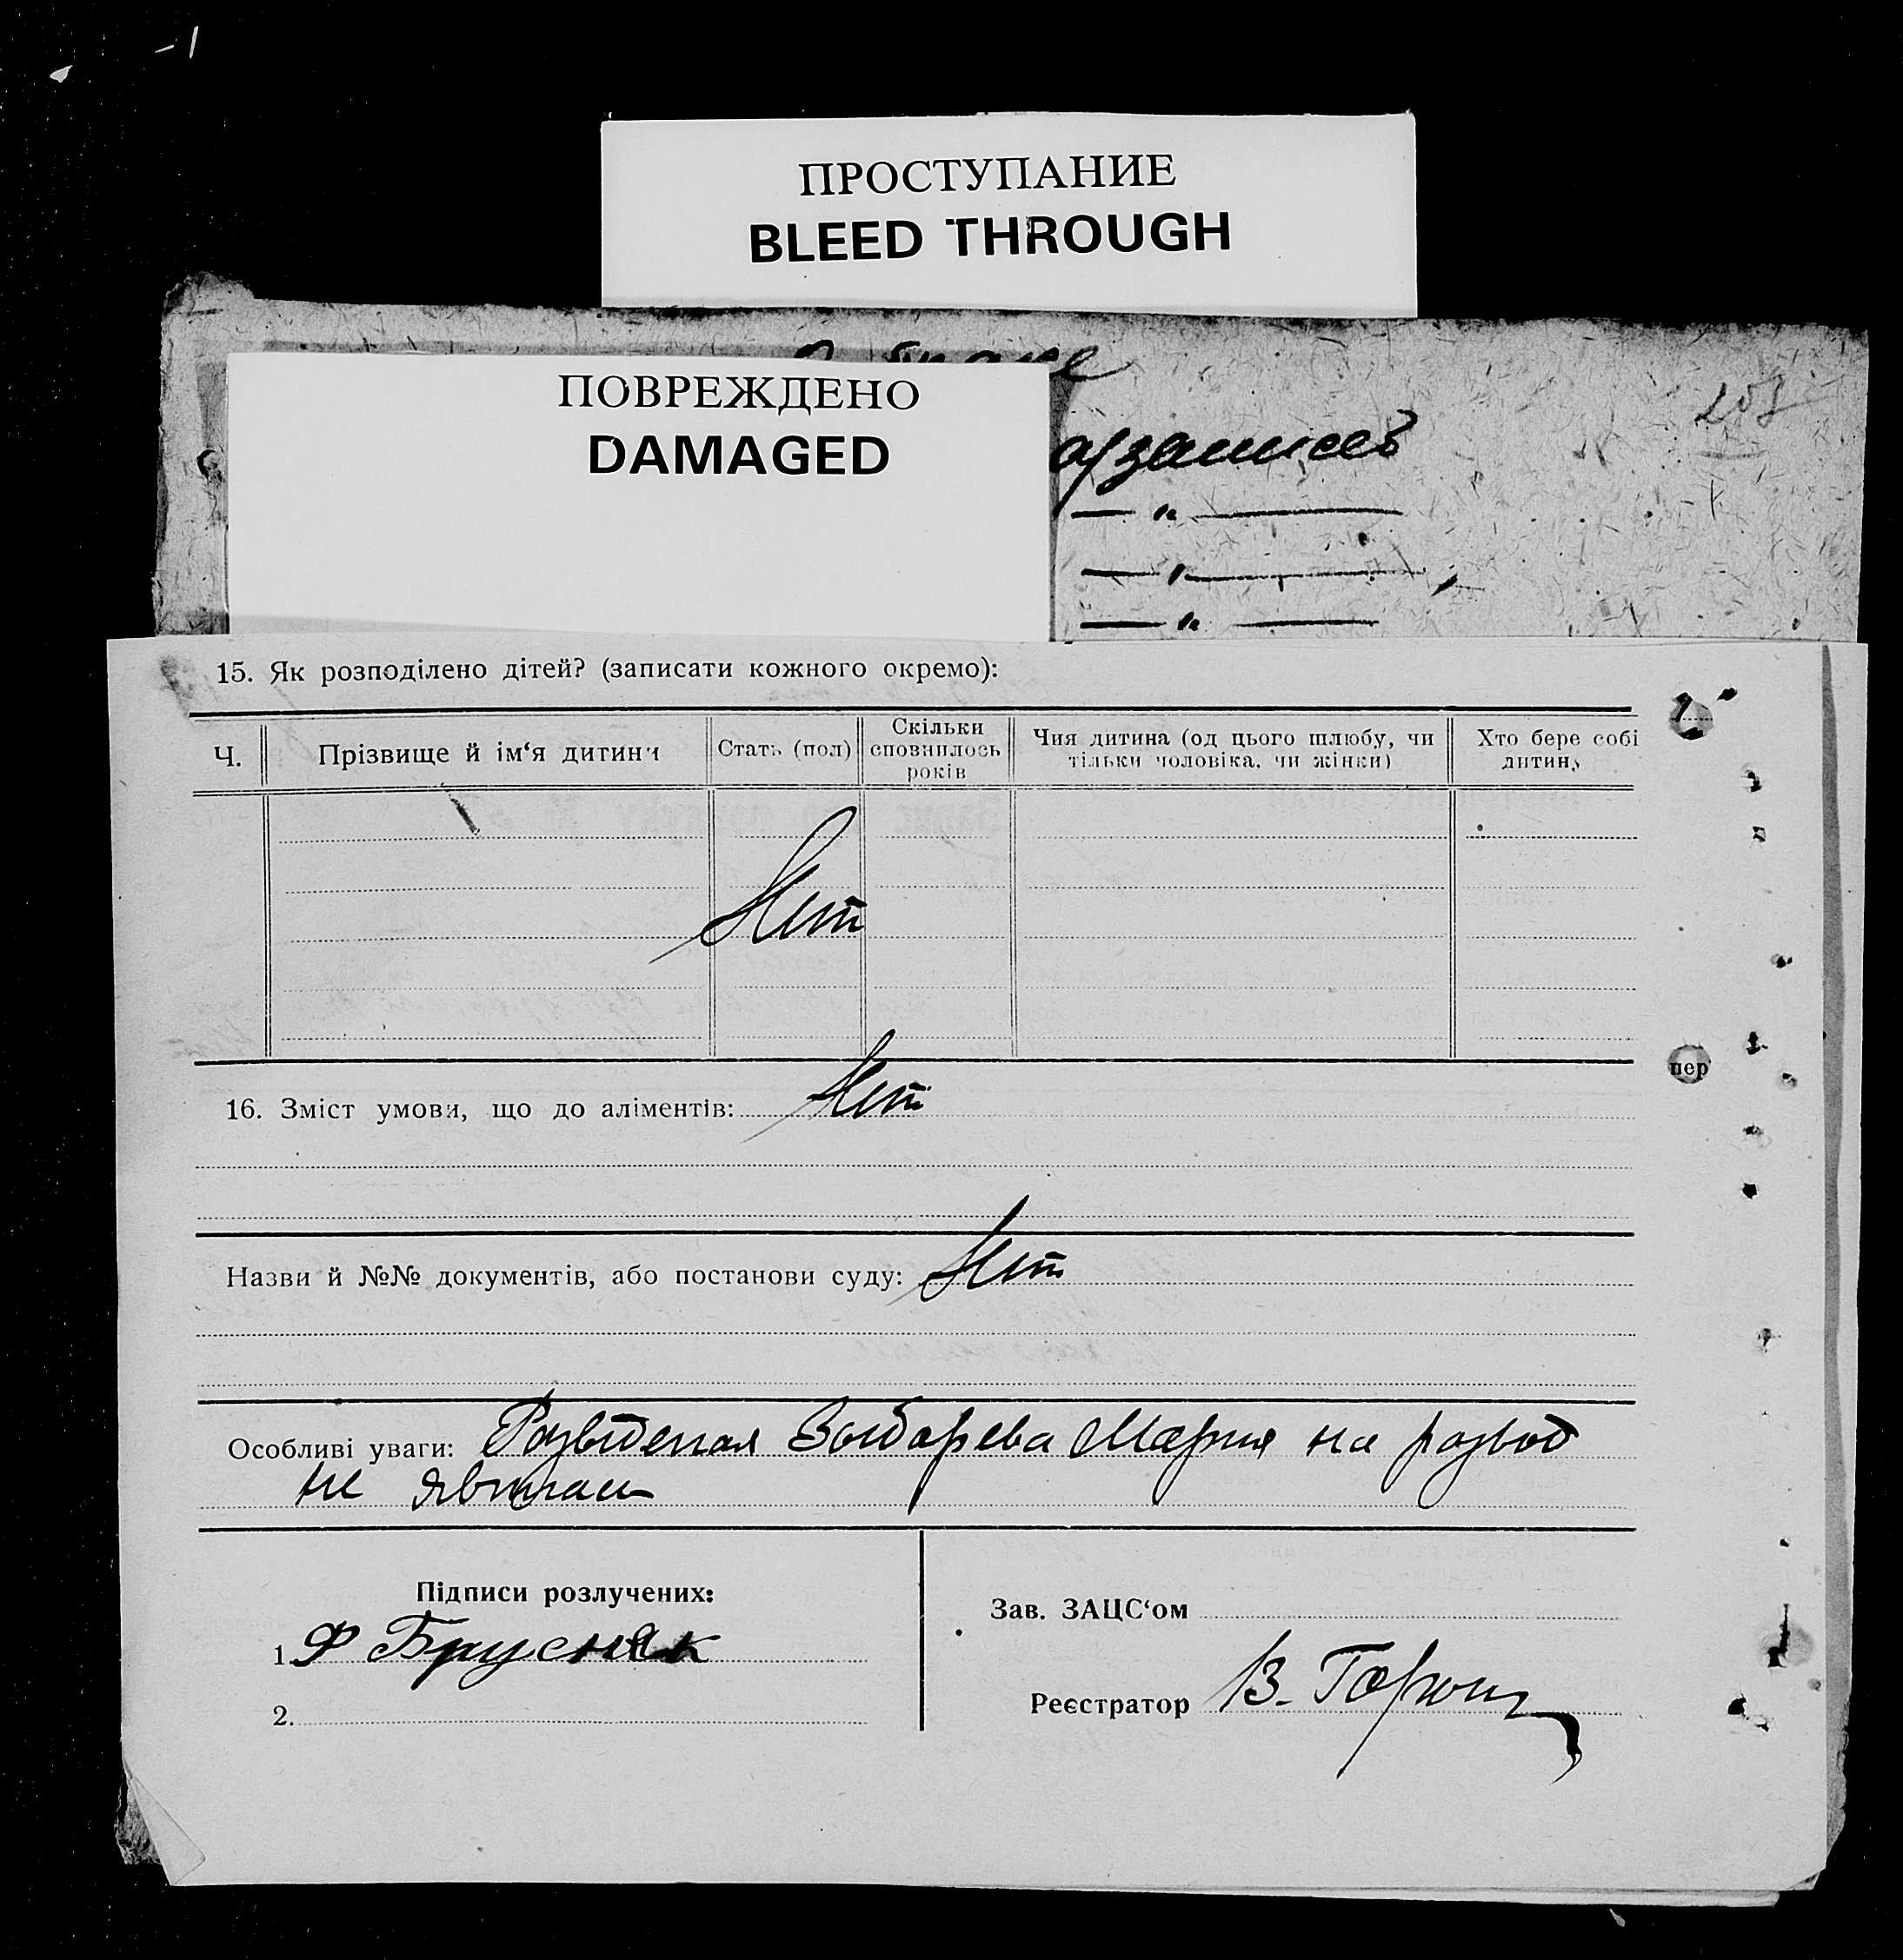 ПРОСТУПАНИЕ
BLEED THROUGH
ПОВРЕЖДЕНО
DAMAGED
15. Як розподілено дітей? (записати кожного окремо):
Ч.
Прізвище й ім‘я дитини
Стать (пол)
Скільки
сповнилось
років
Чия дитина (од цього шлюбу, чи
тільки чоловіка, чи жінки)
Хто бере собі
дитину
Нет
пер
16. Зміст умови, що до аліментів: Нет
Назви й №№ документів, або постанови суду: Нет
Особливі уваги: Мария на развод
не явилась
Підписи розлучених:
1. Ф Брусняк
2.
Зав. ЗАЦС‘ом
Реєстратор В.